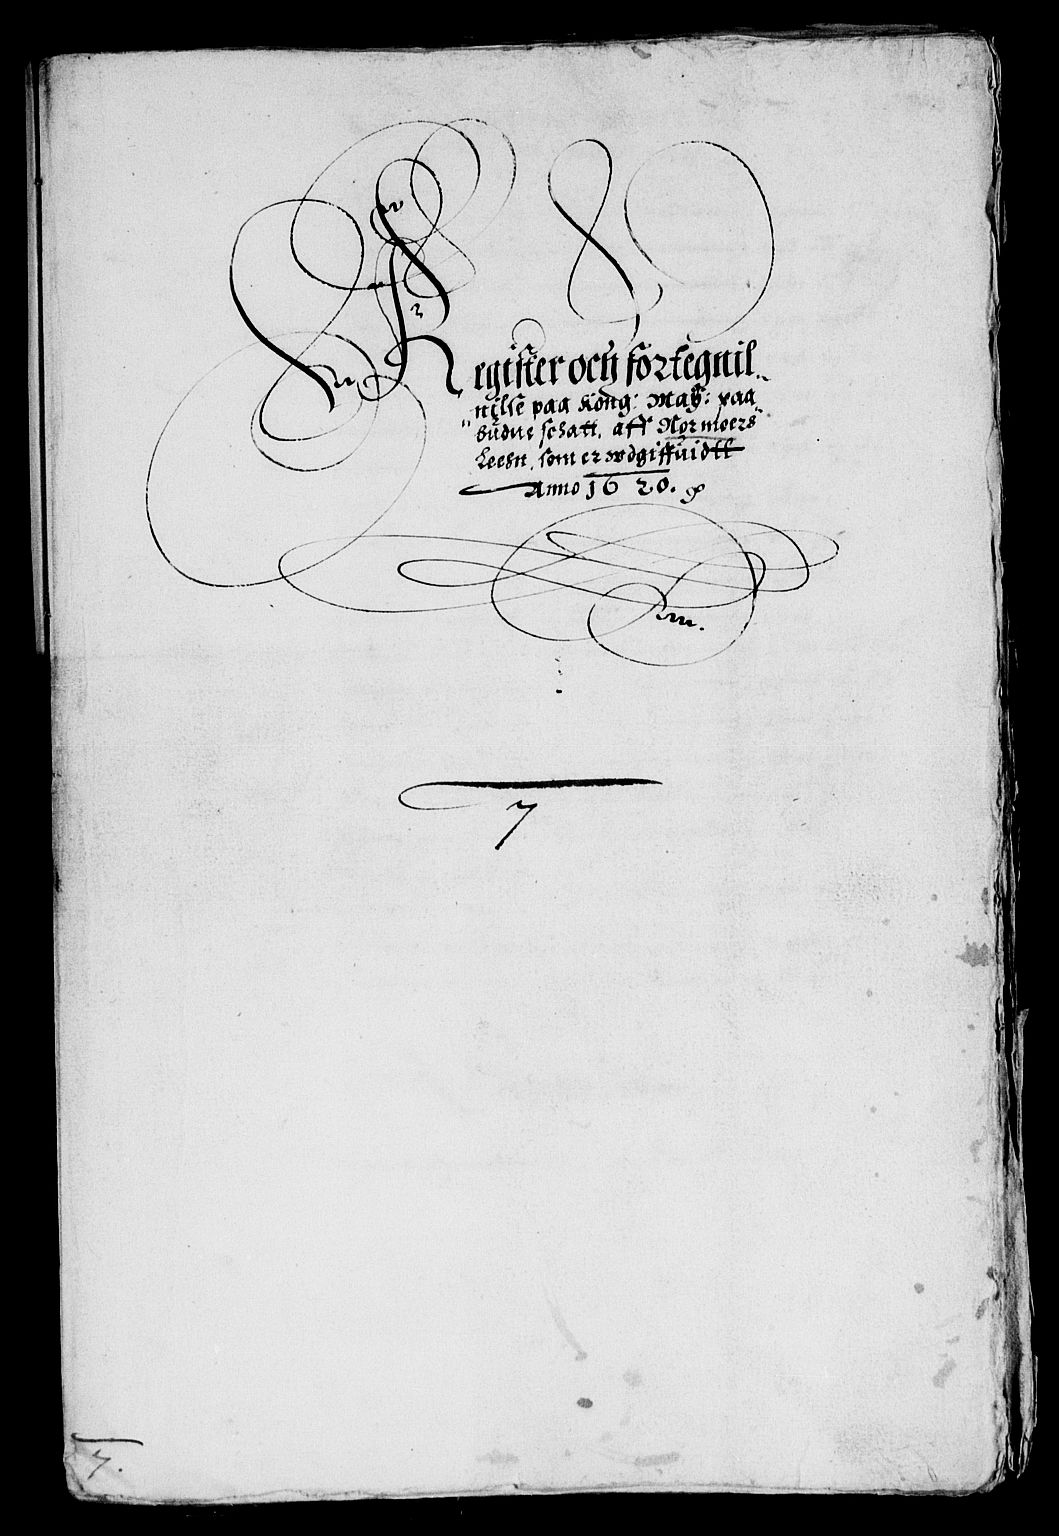 Register och fortegnil„
nilse paa Kong: May: paa„
„budne schatt, aff Normoers
Leehn, som er wdgiffuidtt
Anno 1620.
7
7.